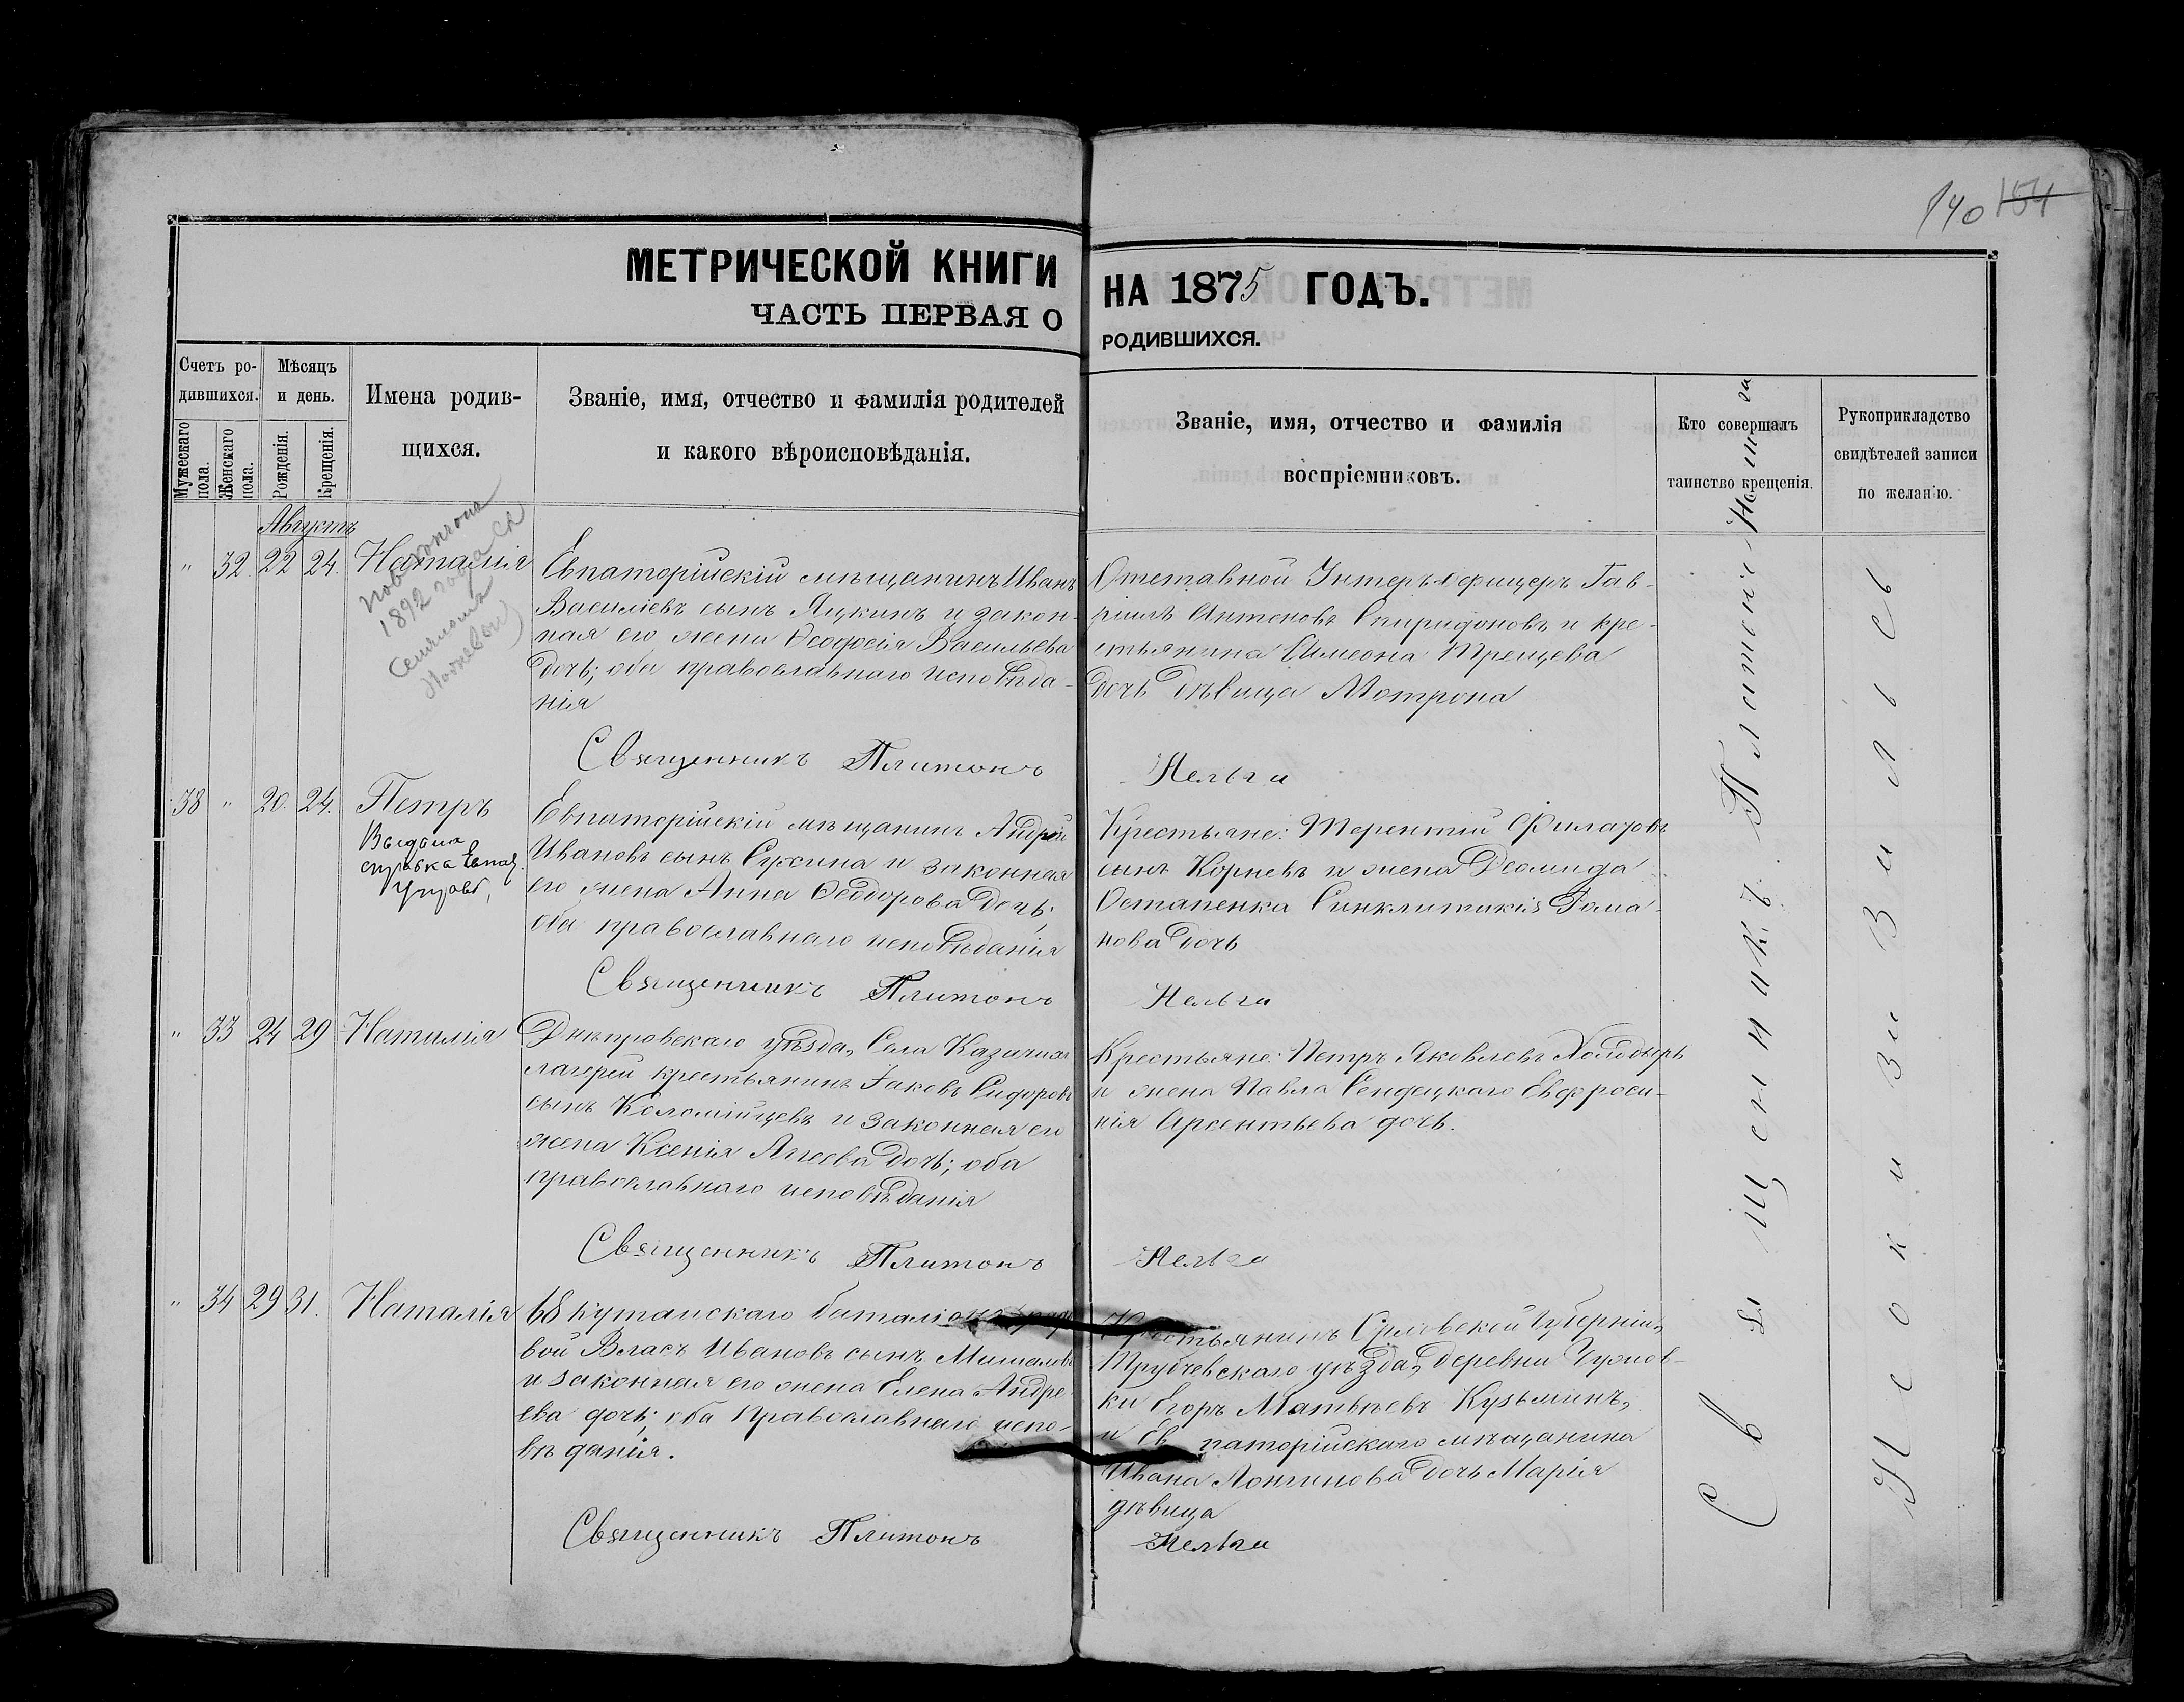 140 154
МЕТРИЧЕСКОЙ КНИГИ НА 1875 ГОДЪ.
ЧАСТЬ ПЕРВАЯ О РОДИВШИХСЯ.
Счетъ ро-
дившихся.
Мужескаго пола.
Женскаго пола.
Мѣсяцъ
и день.
Рожденія.
Крещенія.
Имена родив-
шихся.
Званіе, имя, отчество и фамилія родителей
и какого вѣроисповѣданія.
Званіе, имя, отчество и фамилія
воспріемниковъ.
Кто совершалъ
таинство крещенія.
Рукоприкладство
свидѣтелей записи
по желанію.
Августъ
" 32 22 24. Наталія
1892 года
Евпаторійскій мѣщанинъ Иванъ
Василіевъ сынъ Яцкинъ и закон-
ная его жена Ѳеодосія Васильева
дочь; оба православнаго исповѣда-
нія
Отставной Унтеръ-офицеръ Гав-
ріилъ Антоновъ Спиридоновъ и кре-
стьянина Симеона Трещева
дочь дѣвица Мотрона
Священникъ Платонъ
38 " 20. 24. Петръ
Выдана
справка Евпат.
Управ.
Евпаторійскій мѣщанинъ Андрей
Ивановъ сынъ и законная
его жена Анна Ѳеодорова дочь;
оба православнаго исповѣданія
Крестьяне: Терентій Филатовъ
сынъ Корневъ и жена Діомида
Остапенка Синклитикія Рома-
нова дочь
Священникъ Платонъ
" 33 24 29 Наталія
Днѣпровскаго уѣзда, Села Казачихъ
лагерей крестьянинъ Іаковъ Сидоровъ
сынъ Коломійцевъ и законная его
жена Ксенія Агеева дочь; оба
православнаго исповѣданія
Крестьяне: Петръ Яковлевъ Холодыръ
и жена Павла Сендецкаго Евфроси-
нія Арсентьева дочь.
Священникъ Платонъ
" 34 29 31. Наталія
68 кутаискаго баталіона рядо
вой Власъ Ивановъ сынъ
и законная его жена Елена Андре-
ева дочь; оба Православнаго испо-
вѣданія.
Крестьянинъ Орловской Губерніи,
Трубчевскаго уѣзда, деревни
Егоръ Матвѣевъ Кузьминъ,
и Евпаторійскаго мѣщанина
Ивана Лонгинова дочь Марія
дѣвица
Священникъ Платонъ
Священникъ Платонъ